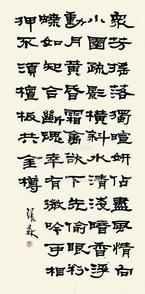 眾芳搖落獨暄妍佔盡風情向
小園疏影橫斜水清淺暗香浮
動月黃昏霜禽欲下先偷眼粉
蝶如知合斷魂幸有微吟可相
狎不須檀板共金樽
張森